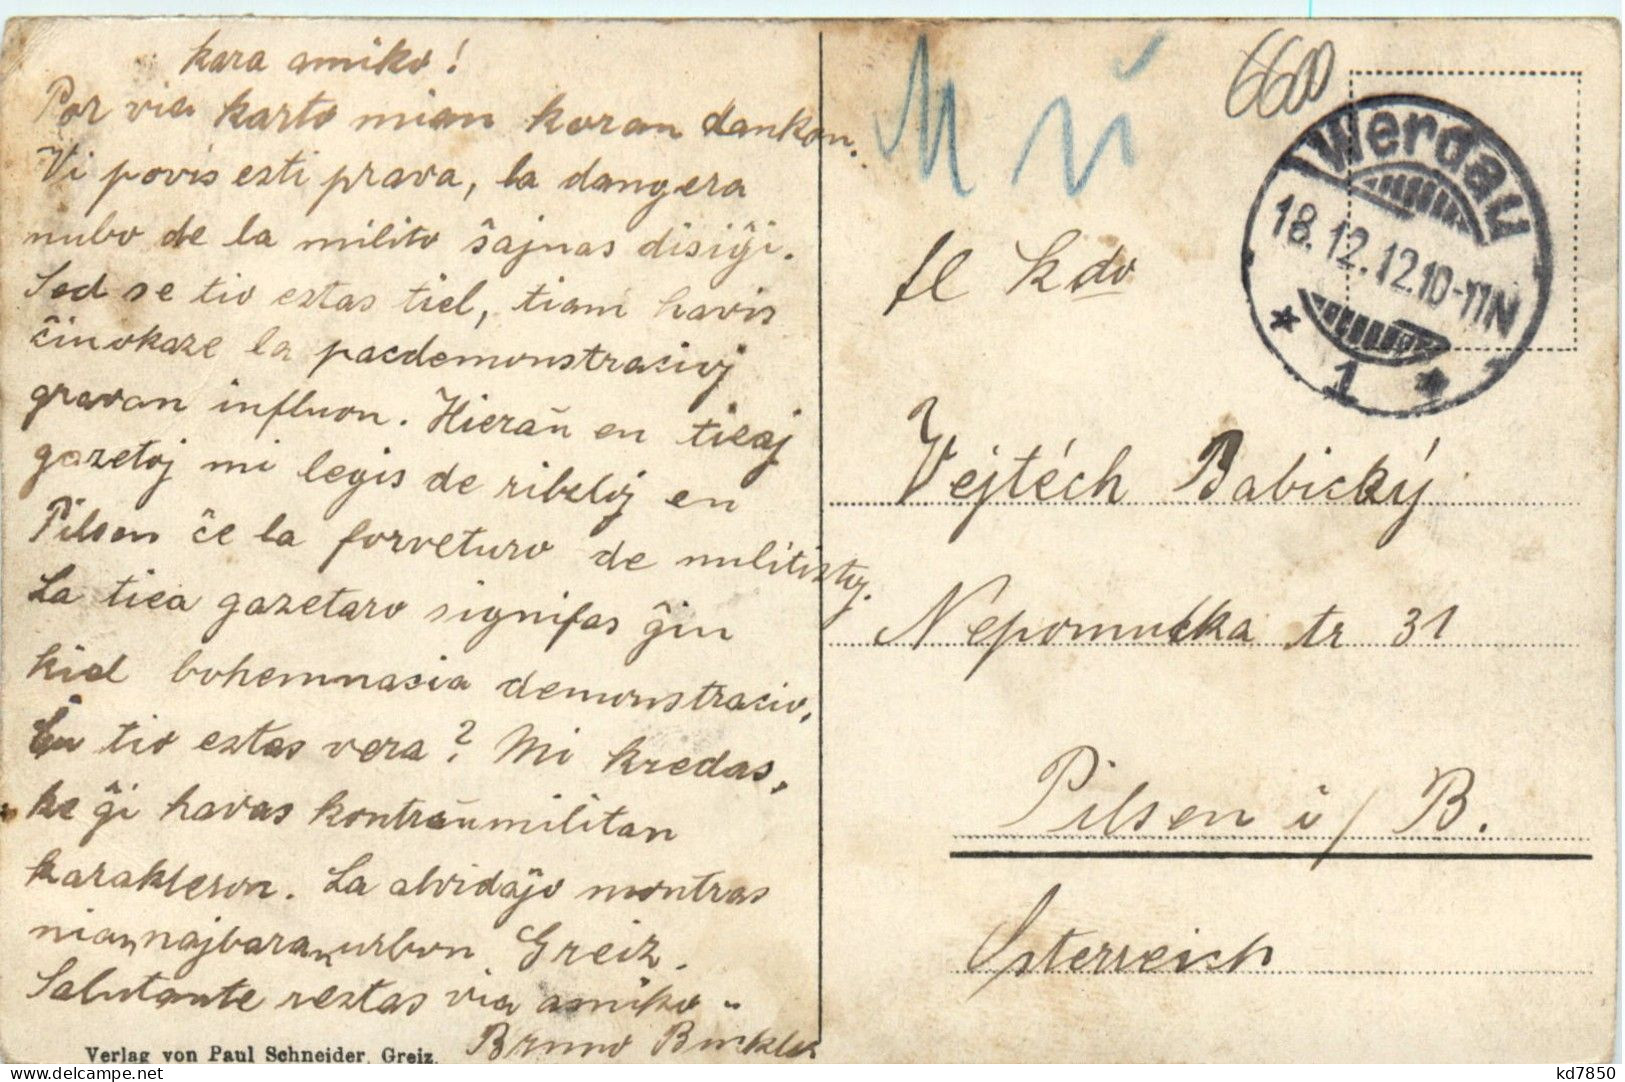 kara amiko!
Por via karto mian koran dankon.
Vi povis esti prava, la dangera
nubo de la milito ŝajnas disiĝi.
Sed se tio estas tiel, tiam havis
ĉiuokaze la pacdemonstracioj
gravan influon. Hieraŭ en tieaj
gazetoj mi legis de ribeloj en
Pilsen ĉe la forveturo de militistoj.
La tiea gazetaro signifas ĝin
kiel bohemnacia demonstracio,
Ĉu tio estas vera? Mi kredas,
ke ĝi havas kontraŭmilitan
karakteron. La alvidaĵo montras
nian najbaran urbon Greiz.
Salutante restas via amiko
Bruno
Verlag von Paul Schneider, Greiz.
660
Werdau
18.12.12.10-11N
* 1 *
Vojtéch Babický
Nepomucka tr 31
Pilsen i/B.
Österreich
kd7850